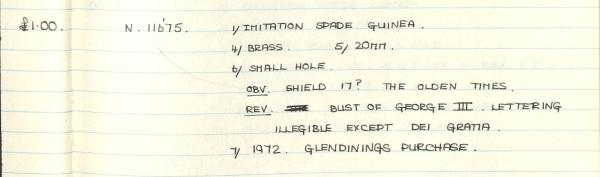 £1.00. N. 11675. 1/ IMITATION SPADE GUINEA.
4/ BRASS. 5/ 20MM.
6/ SMALL HOLE.
OBV. SHIELD 17? THE OLDEN TIMES.
REV. BUST OF GEORGE III. LETTERING
ILLEGIBLE EXCEPT DEI GRATIA.
7/ 1972. GLENDININGS PURCHASE.